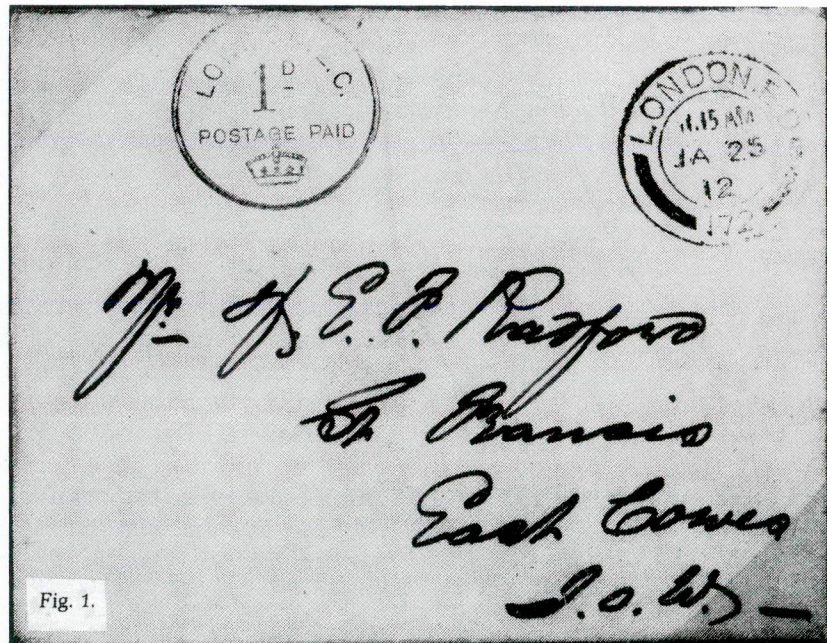 1D
POSTAGE PAID
LONDON.
11.15 AM
JA 25
12
172
Mr E. F. Radford
St Francis
East Cowes
I.O.W.
Fig. 1.